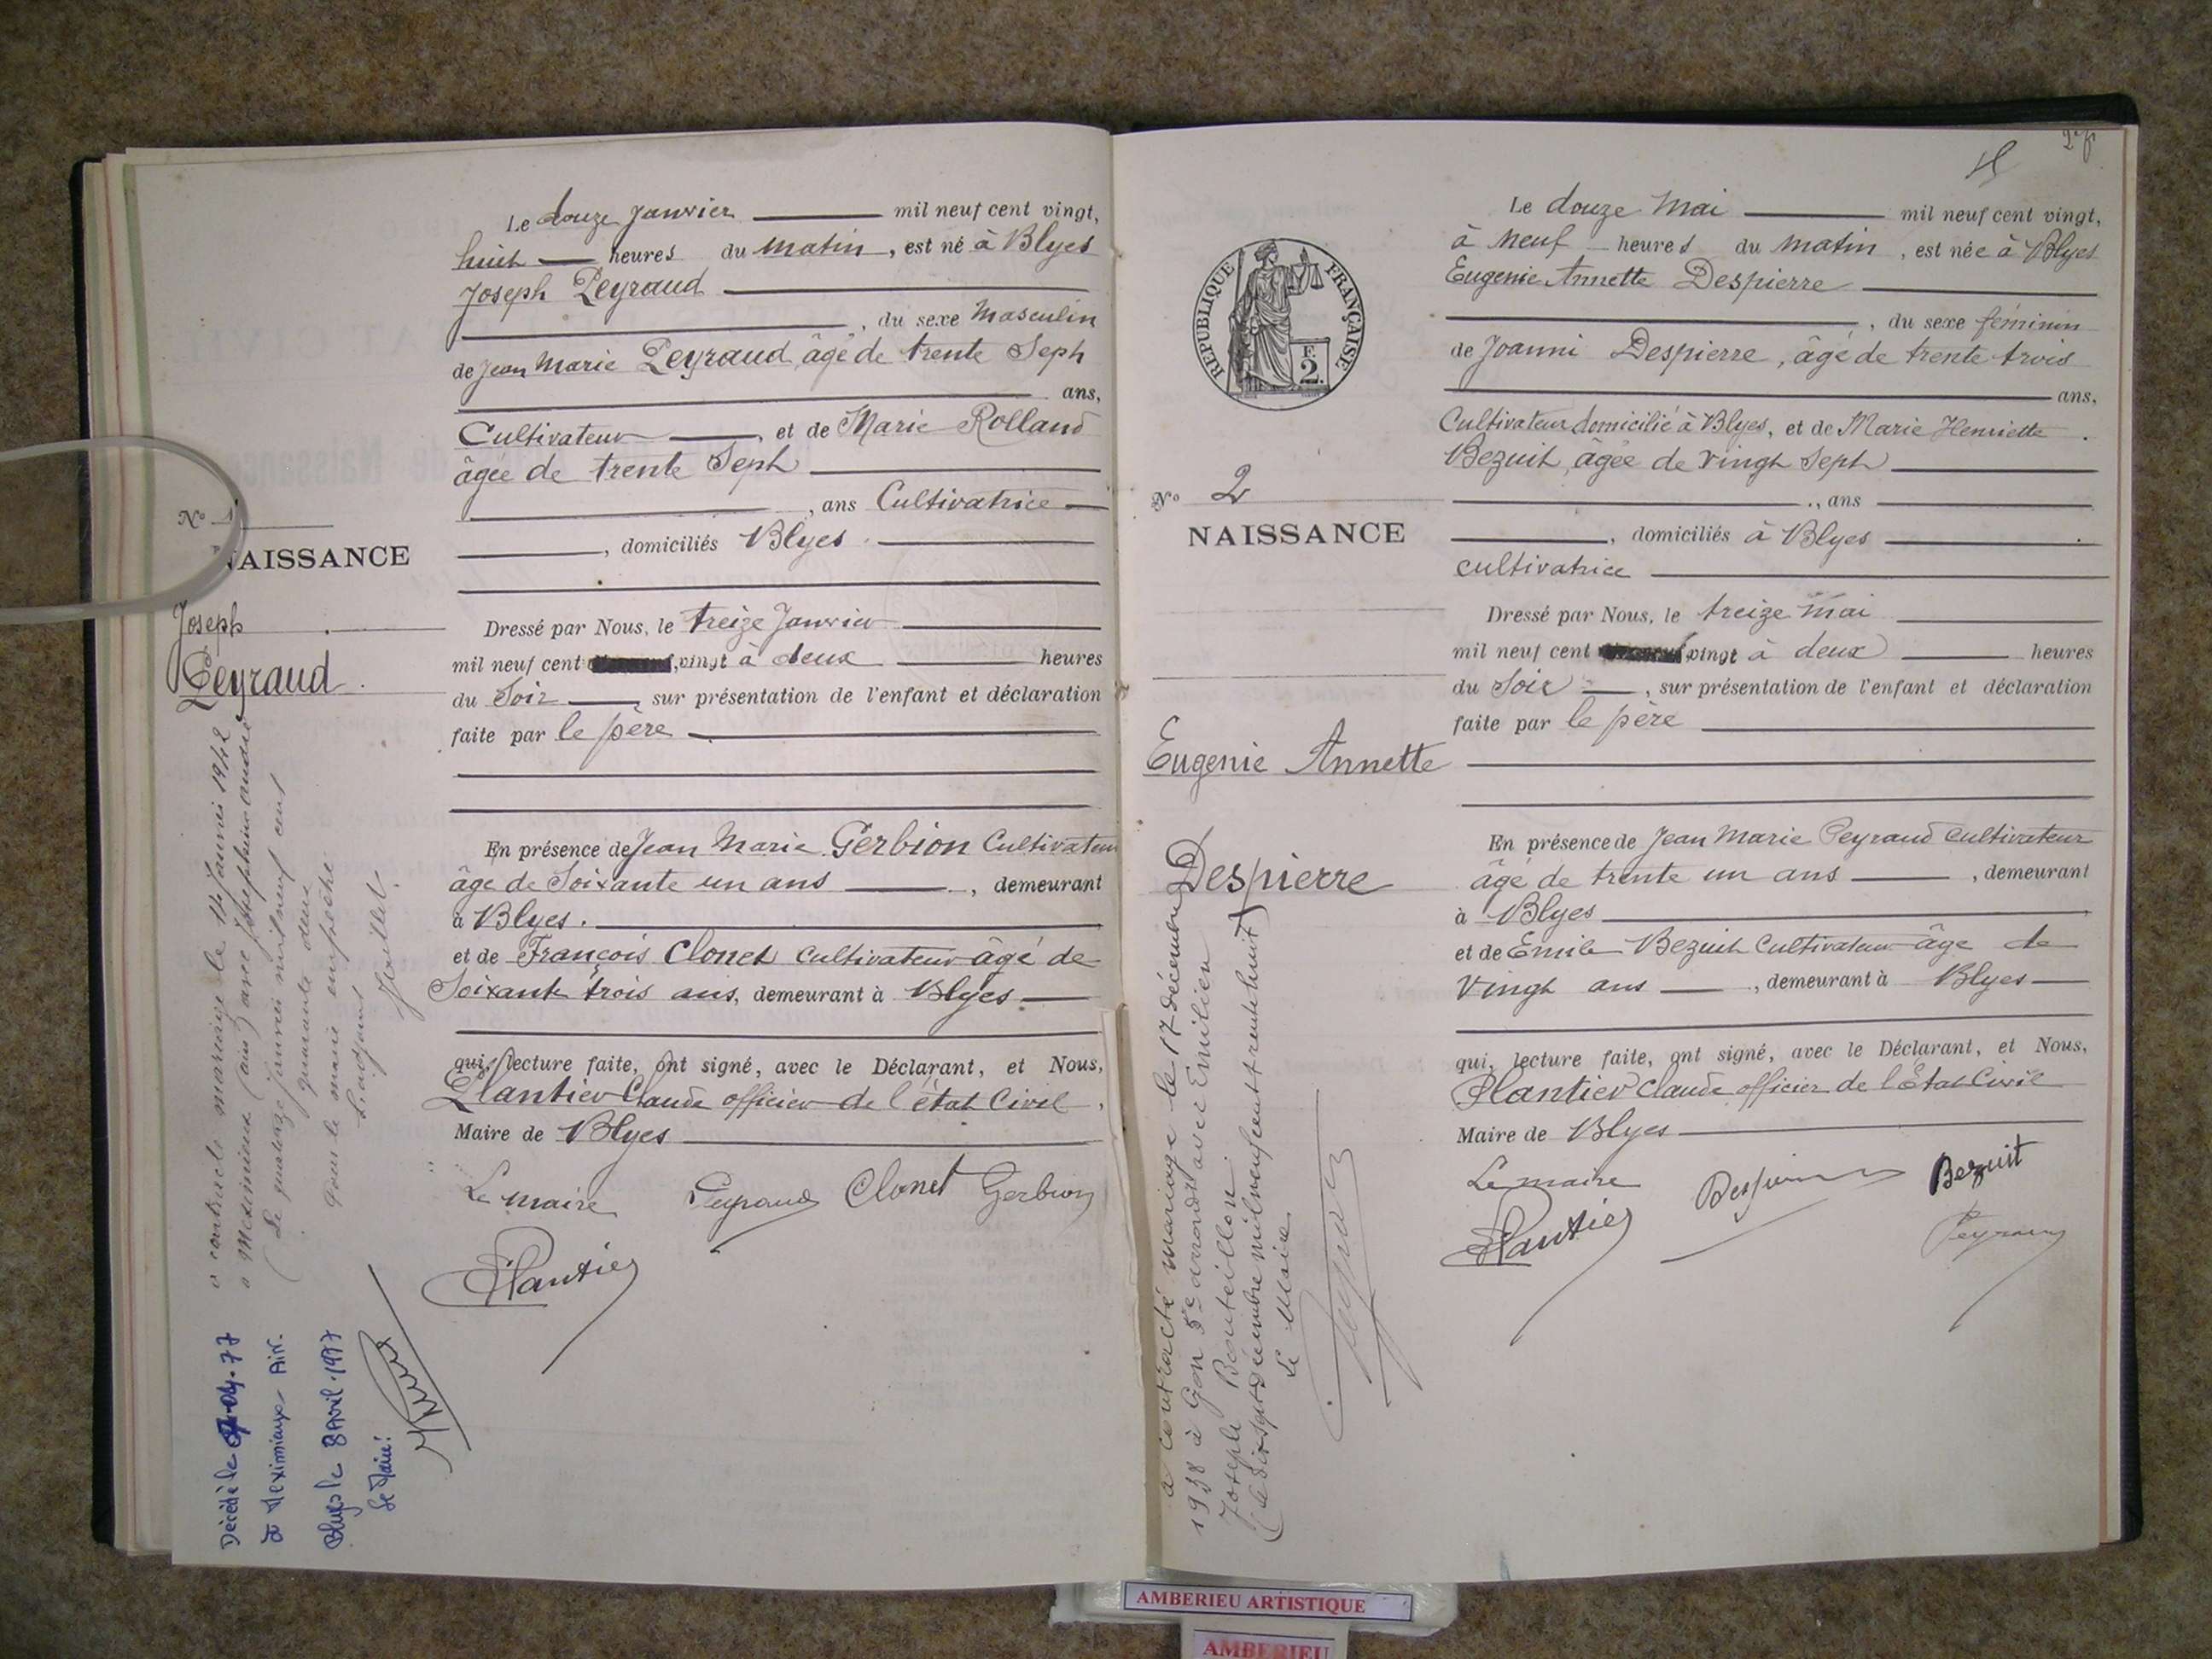 Le douze Janvier mil neuf cent vingt,
huit heures du matin, est né à Blyes
Joseph Peyraud
, du sexe Masculin
de Jean Marie Peyraud âgé de trente Seph
ans,
Cultivateur, et de Marie Rolland
âgée de trente Seph
, ans Cultivatrice
, domiciliés Blyes
Nº 1
NAISSANCE
Joseph
Peyraud
Dressé par Nous, le treize Janvier
mil neuf cent vingt à deux heures
du Soir, sur présentation de l'enfant et déclaration
faite par le père
En présence de Jean Marie Gerbion Cultivateur
âgé de Soixante un ans, demeurant
à Blyes.
et de François Clonet cultivateur âgé de
Soixante trois ans, demeurant à Blyes
qui, lecture faite, ont signé, avec le Déclarant, et Nous,
Plantier Claude officier de l'état Civil,
Maire de Blyes
Le maire Peyraud Clonet Gerbion
Plantier
a contracté mariage le 14 Janvier 1942
a Meximieux (ain) avec Joséphine
(Le quatorze janvier mil neuf cent
quarante deux
Pour le maire empêché
L'adjoint
Décédé le 04.77
à Meximieux Ain.
Blyes le 8 Avril 1977
Le Maire:
2
RÉPUBLIQUE FRANÇAISE
F.
2.
Le douze Mai mil neuf cent vingt,
à Neuf heures du matin, est née à Blyes
Eugenie Annette Despierre
, du sexe féminin
de Joanni Despierre, âgé de trente trois
ans,
Cultivateur domicilié à Blyes, et de Marie Henriette
Bezuit âgée de vingh Seph
, ans
, domiciliés à Blyes
cultivatrice
Nº 2
NAISSANCE
Eugenie Annette
Despierre
Dressé par Nous, le treize Mai
mil neuf cent vingt à deux heures
du Soir, sur présentation de l'enfant et déclaration
faite par le père
En présence de Jean Marie Peyraud cultivateur
âgé de trente un ans, demeurant
à Blyes
et de Emile Bezuit Cultivateur âge de
Vingh ans, demeurant à Blyes
qui, lecture faite, ont signé, avec le Déclarant, et Nous,
Plantier Claude officier de l'État Civil
Maire de Blyes
Le maire Despierre Bezuit
Plantier Peyraud
a contracté mariage le 17 décembre
1938 à Lyon 5e arrondt avec Emilien
Joseph Bouteillon.
(Le dix sept décembre mil neuf cent trente huit)
Le Maire
AMBERIEU ARTISTIQUE
AMBERIEU